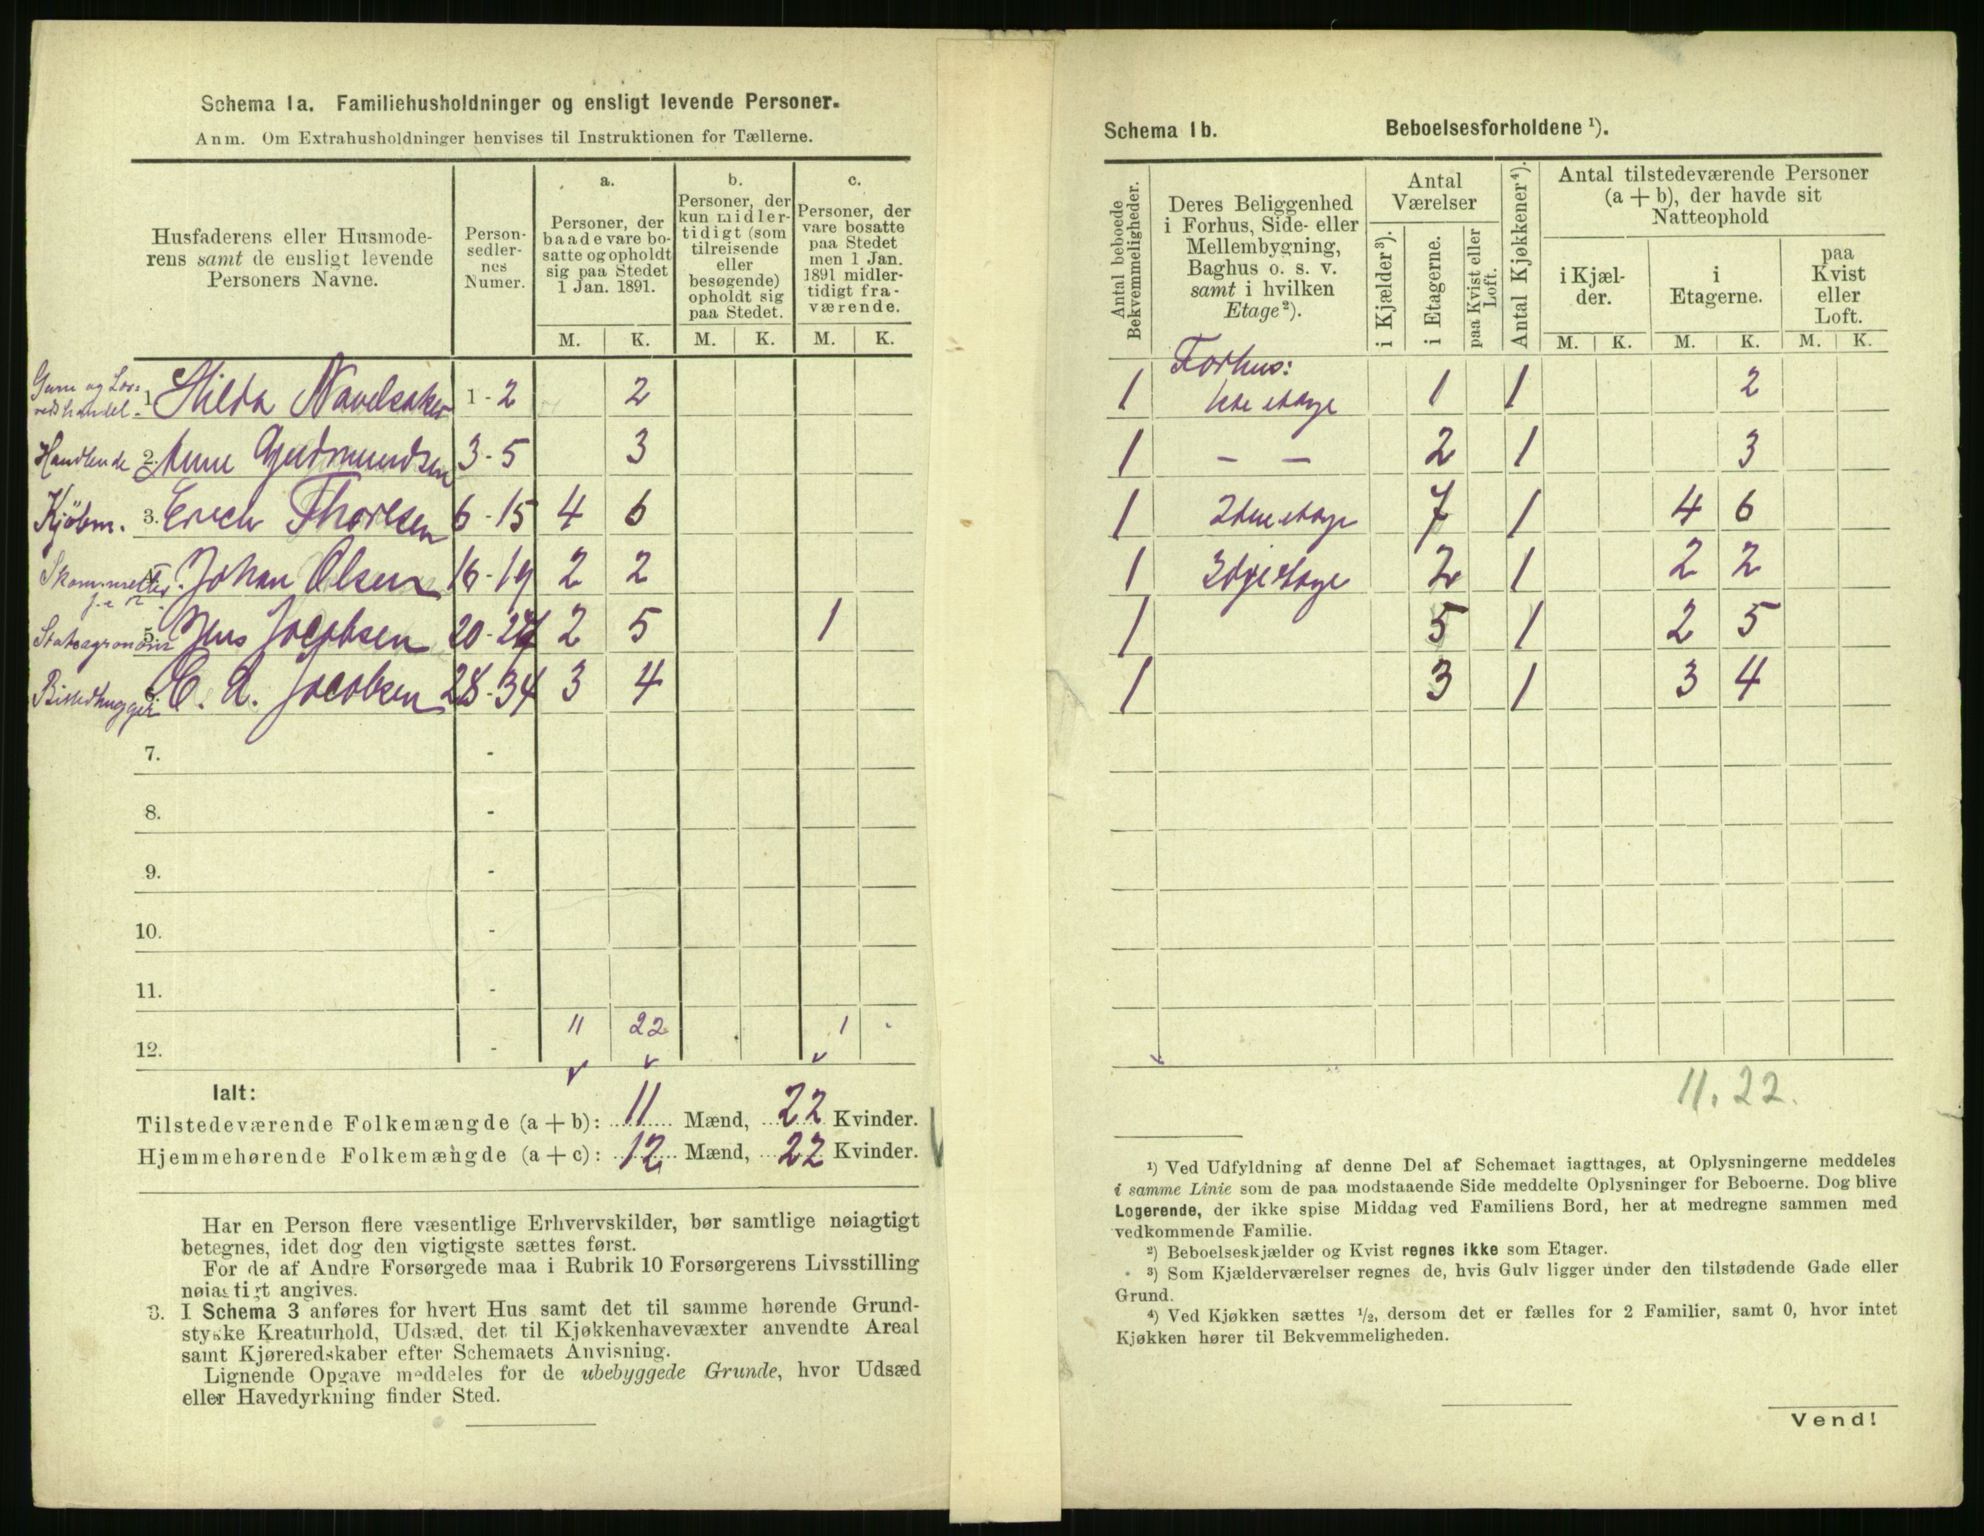 Schema 1a. Familiehusholdninger og ensligt levende Personer.
Anm. Om Extrahusholdninger henvises til Instruktionen for Tællerne.
Husfaderens eller Husmode-
rens samt de ensligt levende
Personers Navne.
Person-
sedler-
nes
Numer.
a.
Personer, der
baade vare bo-
satte og opholdt
sig paa Stedet
1 Jan. 1891.
b.
Personer, der
kun midler-
tidigt (som
tilreisende
eller
besøgende)
opholdt sig
paa Stedet.
c.
Personer, der
vare bosatte
paa Stedet
men 1 Jan.
1891 midler-
tidigt fra-
værende.
M. K. M. K. M. K.
1. Hilda 1 - 2 2
Handlende 2. Anne Gudmundsen 3 - 5 3
Kjøbm. 3. Erich Thorlsen 6 - 15 4 6
Johan Olsen 16 - 19 2 2
5. Jens Jacobsen 20 - 27 2 5 1
Billedhugger 6. C. L. Jacobsen 28 - 34 3 4
7. -
8. -
9. -
10. -
11. -
11 22 1
12. -
Ialt:
Tilstedeværende Folkemængde (a + b): 11 Mænd, 22 Kvinder.
Hjemmehørende Folkemængde (a + c): 12 Mænd, 22 Kvinder.
Har en Person flere væsentlige Erhvervskilder, bør samtlige nøiagtigt
betegnes, idet dog den vigtigste sættes først.
For de af Andre Forsørgede maa i Rubrik 10 Forsørgerens Livsstilling
nøiagtigt angives.
3. I Schema 3 anføres for hvert Hus samt det til samme hørende Grund-
stykke Kreaturhold, Udsæd, det til Kjøkkenhavevæxter anvendte Areal
samt Kjøreredskaber efter Schemaets Anvisning.
Lignende Opgave meddeles for de ubebyggede Grunde, hvor Udsæd
eller Havedyrkning finder Sted.
Schema 1b. Beboelsesforholdene ¹).
Antal beboede
Bekvemmeligheder.
Deres Beliggenhed
i Forhus, Side- eller
Mellembygning,
Baghus o. s. v.
samt i hvilken
Etage²).
Antal
Værelser
i Kjælder³).
i Etagerne.
paa Kvist eller
Loft.
Antal Kjøkkener⁴).
Antal tilstedeværende Personer
(a + b), der havde sit
Natteophold
i Kjæl-
der.
i
Etagerne.
paa
Kvist
eller
Loft.
M. K. M. K. M. K.
Forhus:
1 1ste etage 1 1 2
1 — — 2 1 3
1 2den etage 7 1 4 6
1 3dje etage 2 1 2 2
1 5 1 2 5
1 3 1 3 4
11. 22.
¹) Ved Udfyldning af denne Del af Schemaet iagttages, at Oplysningerne meddeles
i samme Linie som de paa modstaaende Side meddelte Oplysninger for Beboerne. Dog blive
Logerende, der ikke spise Middag ved Familiens Bord, her at medregne sammen med
vedkommende Familie.
²) Beboelseskjælder og Kvist regnes ikke som Etager.
³) Som Kjælderværelser regnes de, hvis Gulv ligger under den tilstødende Gade eller
Grund.
⁴) Ved Kjøkken sættes ½, dersom det er fælles for 2 Familier, samt 0, hvor intet
Kjøkken hører til Bekvemmeligheden.
Vend!